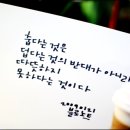 춥다는 것은
덥다는 것의 반대가 아니라
따뜻하지
못하다는 것이다
20090121